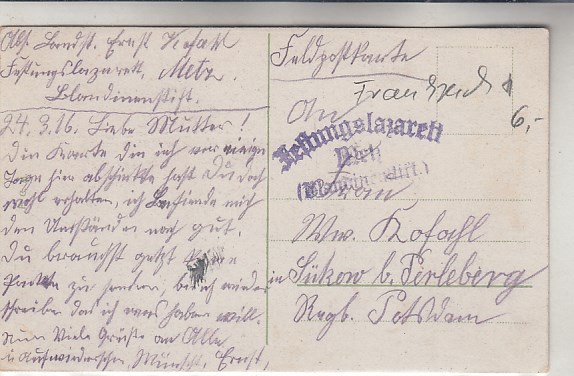 Abs. Landst. Ernst Kofahl
Festungslazarett, Metz.
Blandinenstift.
24.3.16. Liebe Mutter!
Die Karte die ich vor einige
Tage hier abschickte hast Du doch
wohl erhalten, ich befinde mich
den Umständen nach gut.
Du brauchst jetzt keine
Pakete zu senden, bis ich wieder
schreibe das ich was haben will.
Nun Viele Grüße an Alle
u Aufwiedersehen, Ernst,
Feldpostkarte
An
6,-
Festungslazarett
Metz
(Blandinenstift.)
Frau
Ww. Kofahl
in Sükow b. Perleberg
Regb. Potsdam